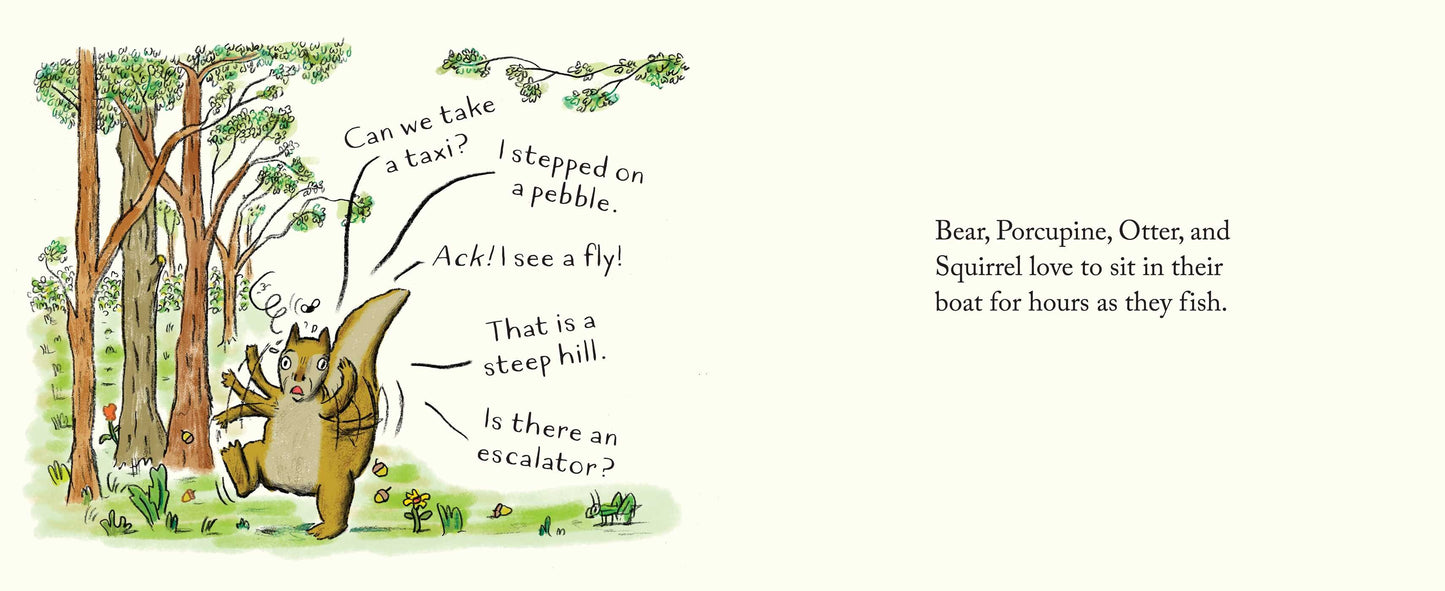 Can we take
a taxi?
I stepped on
a pebble.
Ack! I see a fly!
That is a
steep hill.
Is there an
escalator?
Bear, Porcupine, Otter, and
Squirrel love to sit in their
boat for hours as they fish.